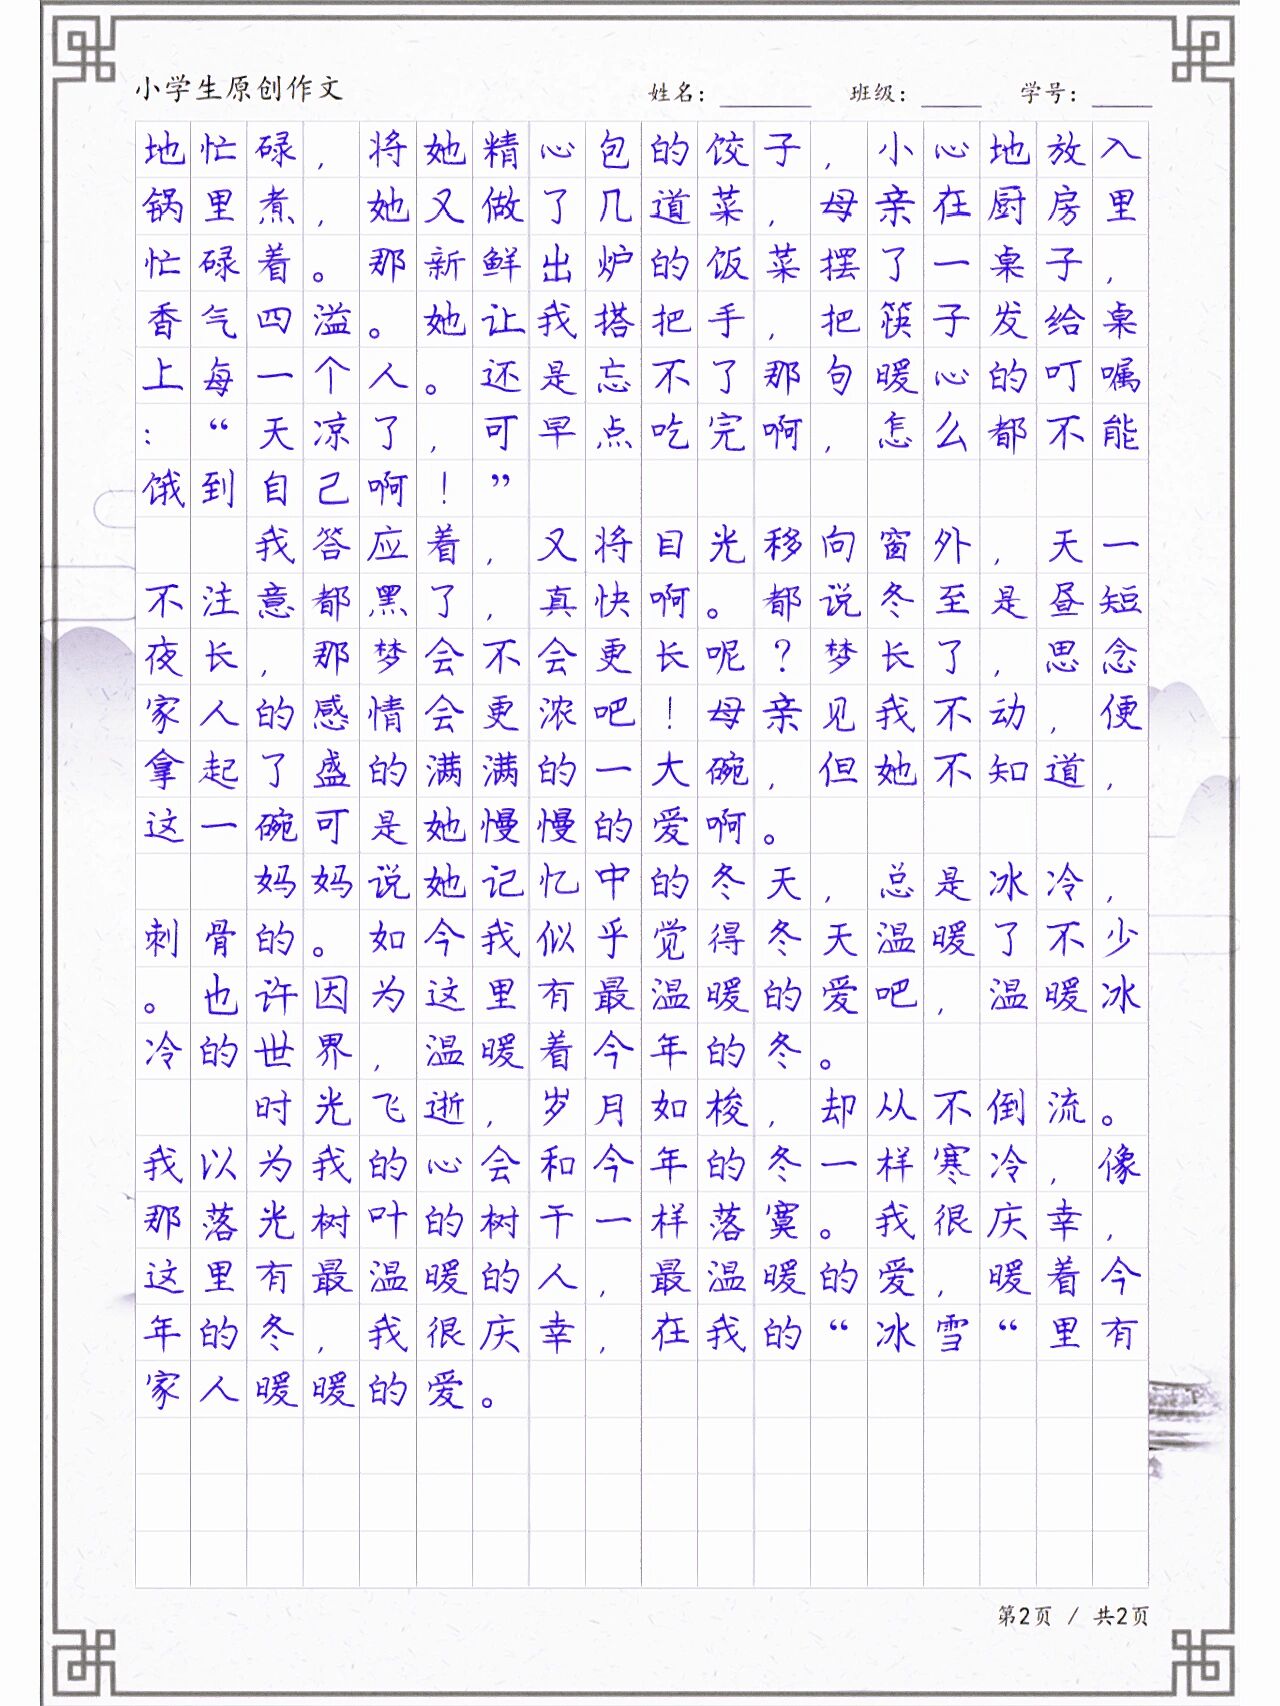 小学生原创作文 姓名：______ 班级：____ 学号：____
地忙碌，将她精心包的饺子，小心地放入
锅里煮，她又做了几道菜，母亲在厨房里
忙碌着。那新鲜出炉的饭菜摆了一桌子，
香气四溢。她让我搭把手，把筷子发给桌
上每一个人。还是忘不了那句暖心的叮嘱
：“天凉了，可早点吃完啊，怎么都不能
饿到自己啊！”
我答应着，又将目光移向窗外，天一
不注意都黑了，真快啊。都说冬至是昼短
夜长，那梦会不会更长呢？梦长了，思念
家人的感情会更浓吧！母亲见我不动，便
拿起了盛的满满的一大碗，但她不知道，
这一碗可是她慢慢的爱啊。
妈妈说她记忆中的冬天，总是冰冷，
刺骨的。如今我似乎觉得冬天温暖了不少
。也许因为这里有最温暖的爱吧，温暖冰
冷的世界，温暖着今年的冬。
时光飞逝，岁月如梭，却从不倒流。
我以为我的心会和今年的冬一样寒冷，像
那落光树叶的树干一样落寞。我很庆幸，
这里有最温暖的人，最温暖的爱，暖着今
年的冬，我很庆幸，在我的“冰雪“里有
家人暖暖的爱。
第2页 / 共2页